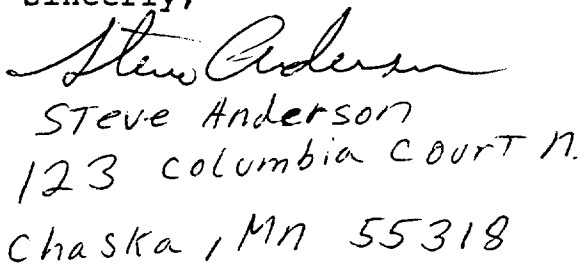 Sincerly,
Steve Anderson
STeve Anderson
123 Columbia CourT N.
Chaska, Mn 55318